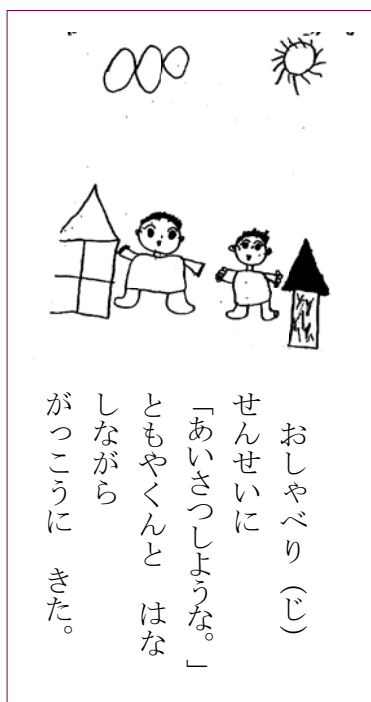 おしゃべり（じ）
せんせいに
「あいさつしような。」
ともやくんと　はな
しながら
がっこうに　きた。